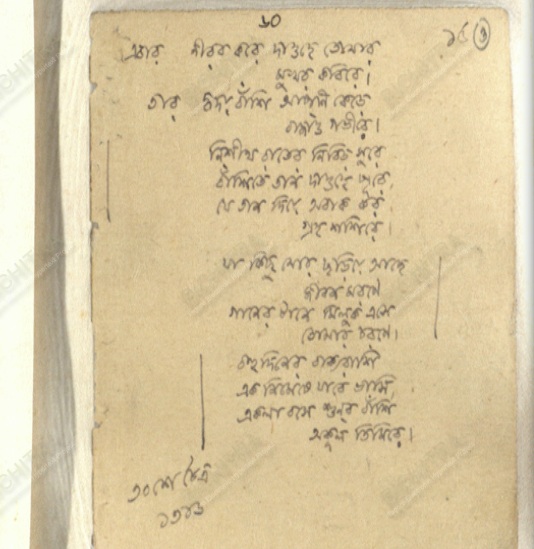 ৬০
১৫ ৩
এবার নীরব করে দাওহে তোমার
মুখর কবিরে।
তার হৃদয় বাঁশি আপনি কেড়ে
বাজাও গভীরে।
নিশীথ রাতের নিবিড় সুরে
বাঁশিতে তান দাওহে পূরে,
যে তান দিয়ে অবাক কর
গ্রহ শশীরে।
যা কিছু মোর ছড়িয়ে আছে
জীবন মরণে
গানের টানে মিলুক এসে
তোমার চরণে।
বহুদিনের বাক্যরাশি
এক নিমেষে যাবে ভাসি,
একলা বসে শুনব বাঁশি
অকূল তিমিরে।
৩০শে চৈত্র
১৩১৬